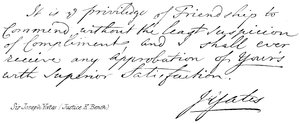 It is ye privilege of Friendship to
Commend, without the least Suspicion
of Compliment, and I shall ever
receive any approbation of Yours
with Superior Satisfaction.
J Yates
Sir Joseph Yates (Justice K. Bench)